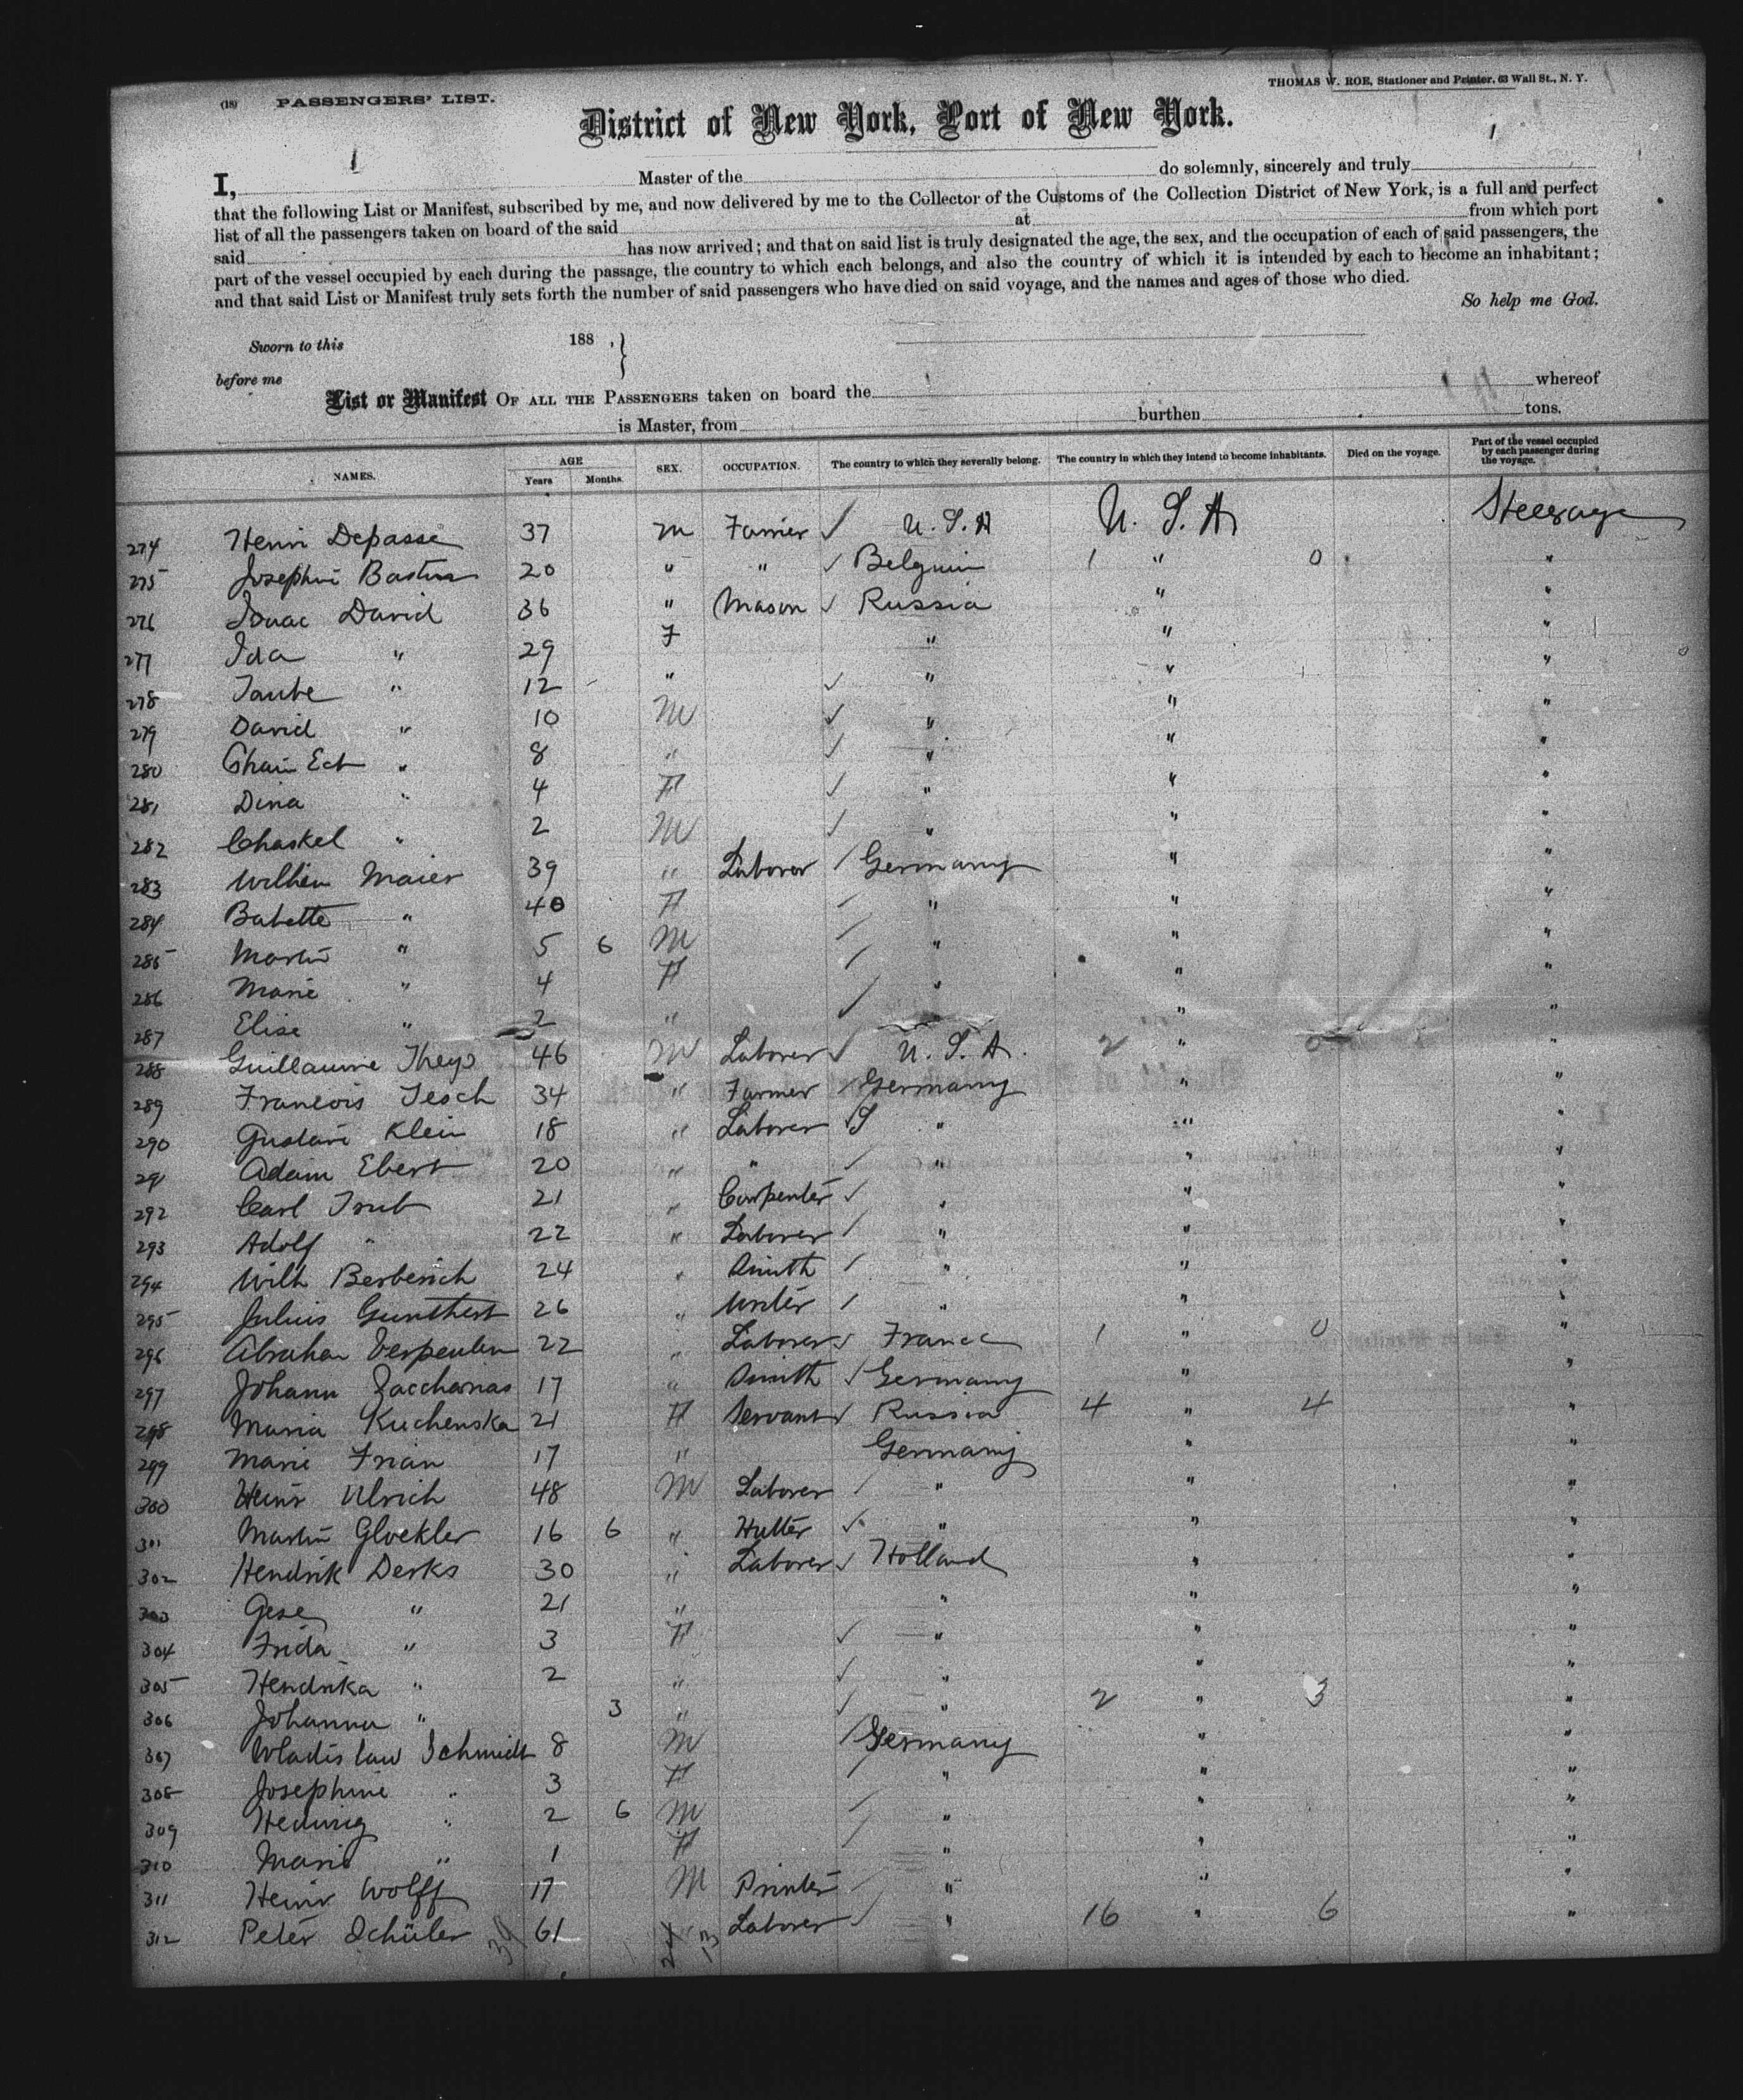 THOMAS W. ROE, Stationer and Printer, 63 Wall St., N. Y.
(18) PASSENGERS' LIST.
District of New York, Port of New York.
I, Master of the do solemnly, sincerely and truly
that the following List or Manifest, subscribed by me, and now delivered by me to the Collector of the Customs of the Collection District of New York, is a full and perfect
list of all the passengers taken on board of the said at from which port
said has now arrived; and that on said list is truly designated the age, the sex, and the occupation of each of said passengers, the
part of the vessel occupied by each during the passage, the country to which each belongs, and also the country of which it is intended by each to become an inhabitant;
and that said List or Manifest truly sets forth the number of said passengers who have died on said voyage, and the names and ages of those who died.
So help me God.
Sworn to this 188 ,}
before me
List or Manifest OF ALL THE PASSENGERS taken on board the whereof
is Master, from burthen tons.
NAMES. AGE Years Months. SEX. OCCUPATION. The country to which they severally belong. The country in which they intend to become inhabitants. Died on the voyage. Part of the vessel occupied by each passenger during the voyage.
274 Henri Depasse 37 m Farrier ✓ U. S. A U. S. A Steerage
275 Josephine 20 " " ✓ Belgium 1 " 0 "
276 Isaac David 36 " Mason ✓ Russia " "
277 Ida " 29 F " " "
278 Taube " 12 " ✓ " " "
279 David " 10 M ✓ " " "
280 " 8 " ✓ " " "
281 Dina " 4 F ✓ " " "
282 Chaskel " 2 M ✓ " " "
283 Wilhem Maier 39 " Laborer / Germany " "
284 Babette " 40 F / " " "
285 Martin " 5 6 M / " " "
286 Marie " 4 F / " " "
287 Elise " 2 " / " "
288 Guillaume 46 M Laborer ✓ U. S. A. 2 " 0 "
289 Francois Tesch 34 " Farmer / Germany " "
290 Gustave Klein 18 " Laborer " " "
291 Adam Ebert 20 " " / " " "
292 Carl Trub 21 " Carpenter ✓ " " "
293 Adolf " 22 " Laborer / " " "
294 Wilh Berberich 24 " Smith / " " "
295 Julius Gunthert 26 " / " " "
296 Abraham 22 " Laborer ✓ France 1 " 0 "
297 Johann Zaccharias 17 " Smith ✓ Germany " "
298 Maria Kuchenska 21 F Servant ✓ Russia 4 " 4 "
299 Marie Frian 17 " Germany " "
300 Heinr Ulrich 48 M Laborer / " " "
301 Martin Gloekler 16 6 " Hutter ✓ " " "
302 Hendrik Derks 30 " Laborer ✓ Holland " "
303 Gese " 21 " " " "
304 Frida " 3 F ✓ " " "
305 Hendrika " 2 " ✓ " " "
306 Johanna " 3 " ✓ " 2 " 3 "
307 Wladislaw Schmidt 8 M / Germany " "
308 Josephine " 3 F / " " "
309 Hedwig " 2 6 M / " " "
310 Marie " 1 F / " " "
311 Heinr Wolff 17 M Printer / " " "
312 Peter Schüler 61 Laborer / " 16 " 6 "
39 24 13